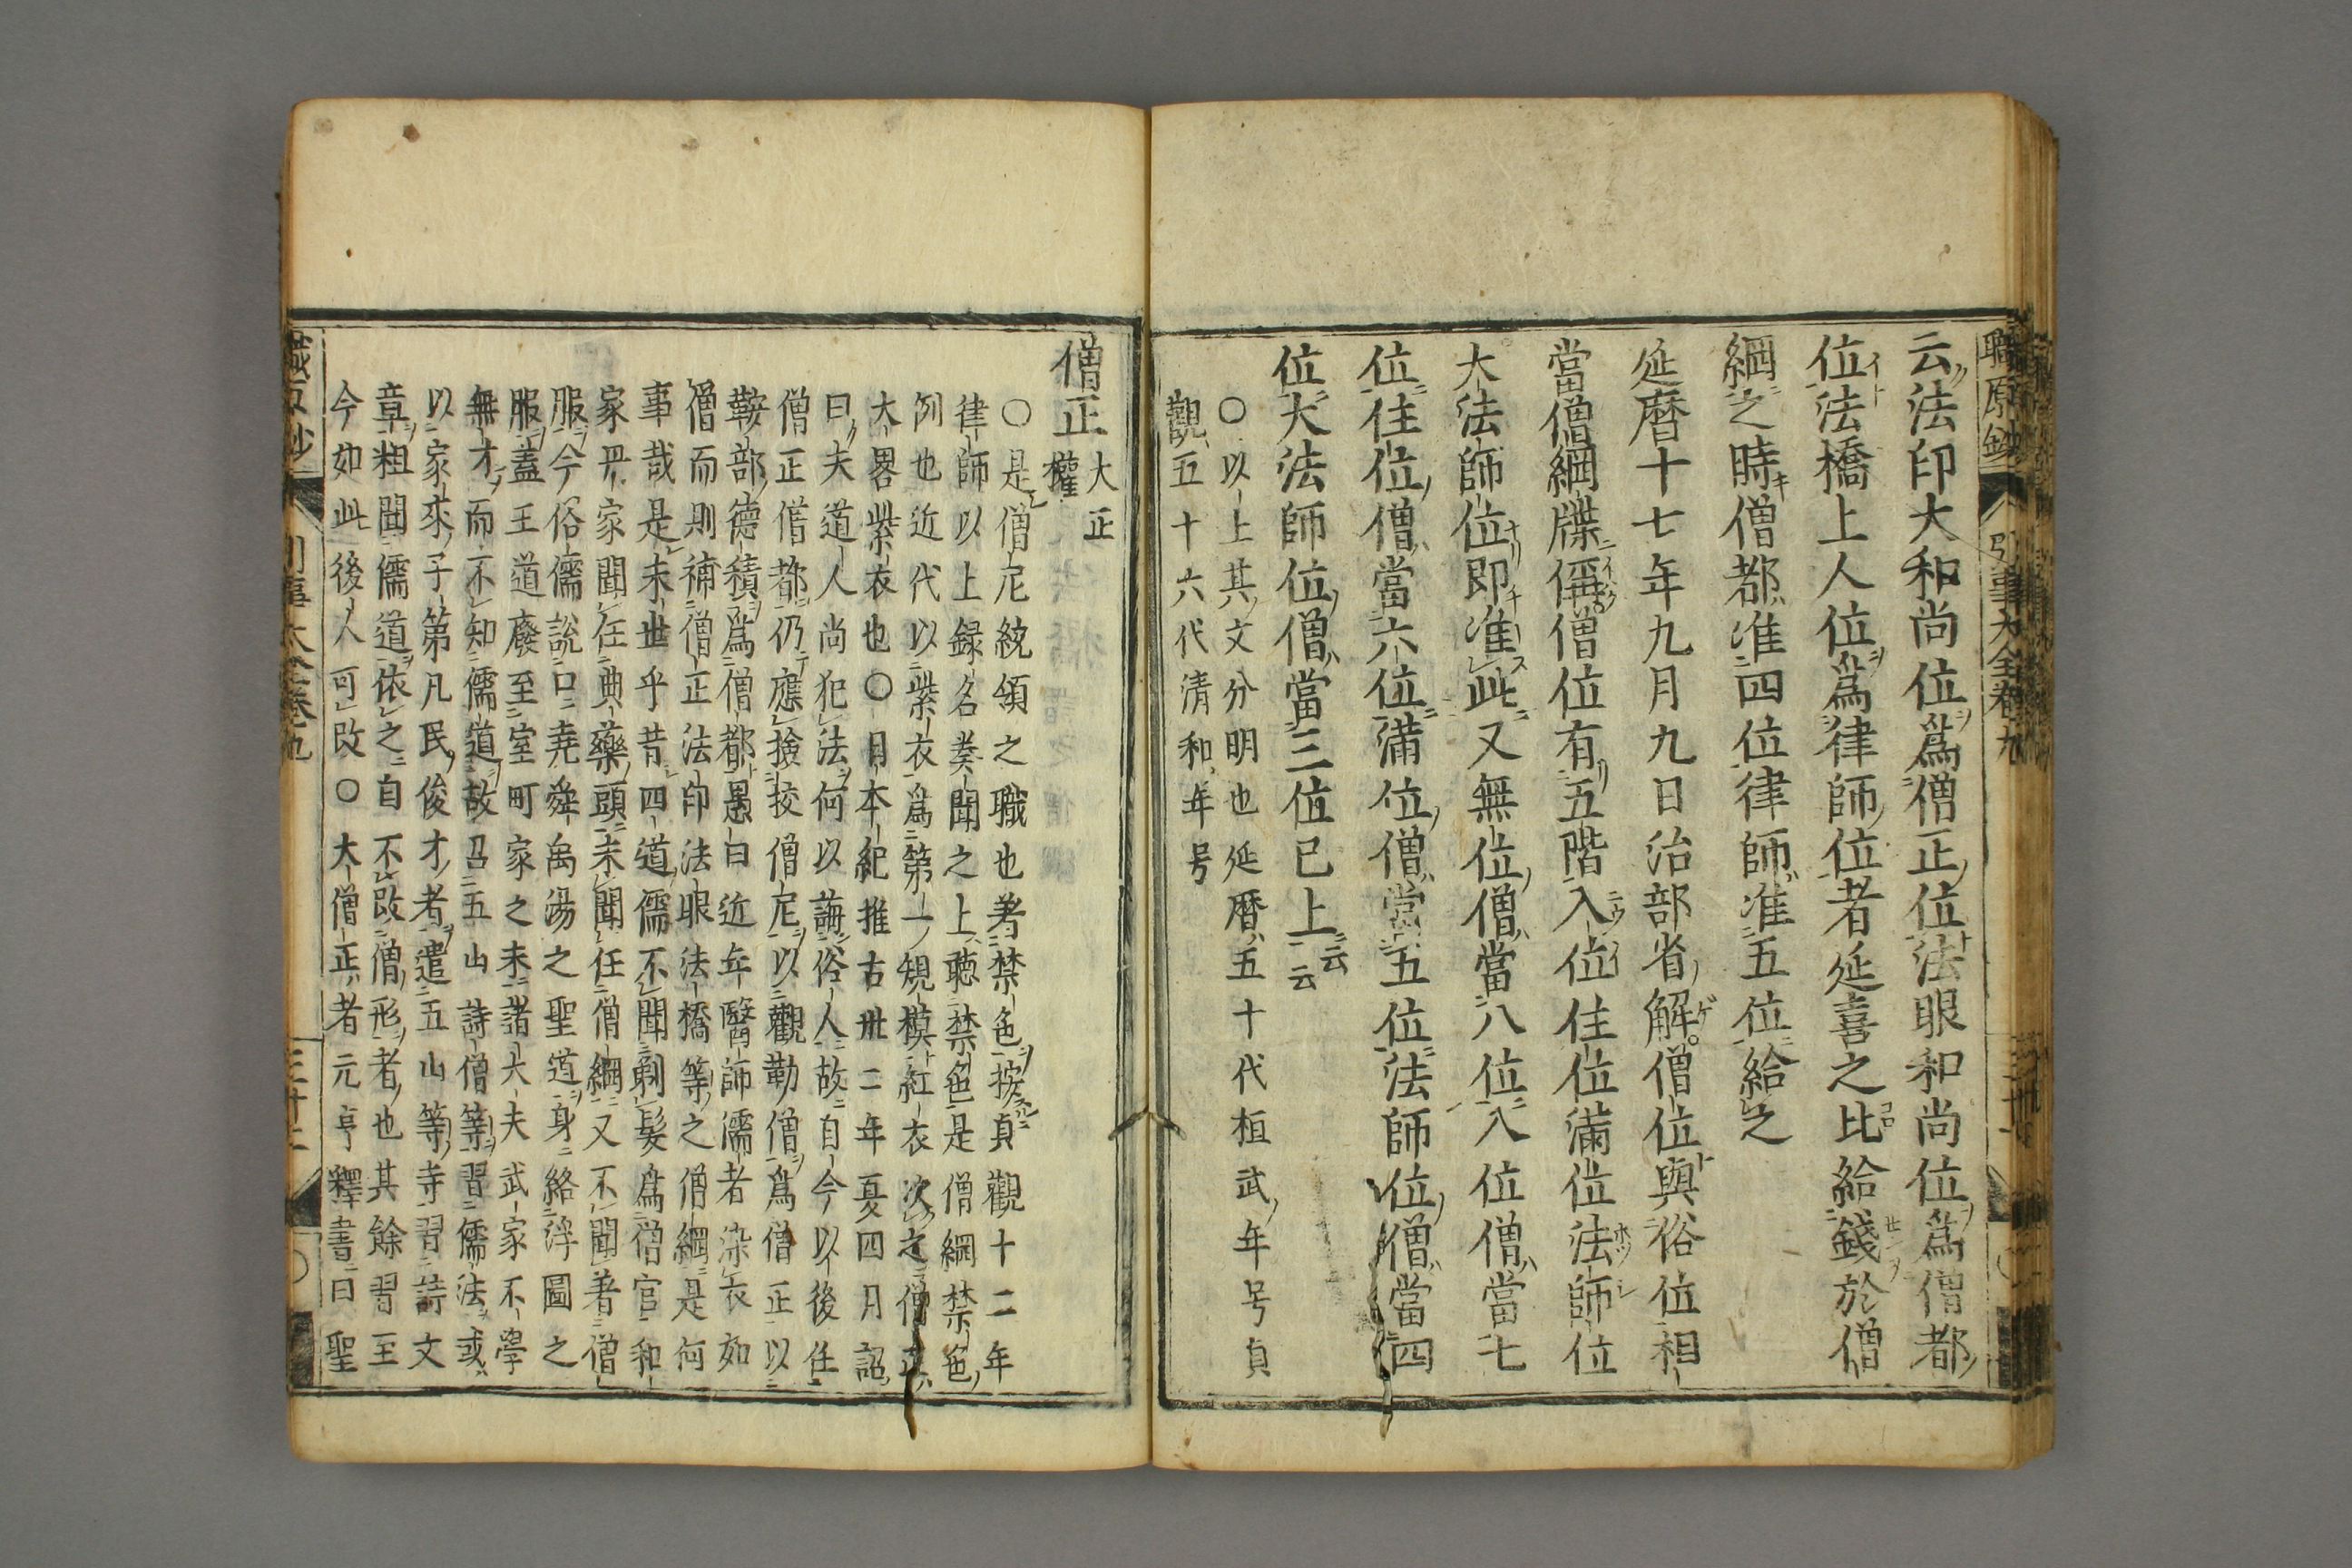 職原鈔
引事大全卷九
云法印大和尚位爲僧正位法眼和尚位爲僧都
位法橋上人位爲律師位者延喜之比給錢於僧
綱之時僧都准四位律師准五位給之
延曆十七年九月九日治部省解僧位與俗位相
當僧綱牒俑僧位有五階入位住位滿位法師位
大法師位即准此又無位僧當八位入位僧當七
位住位僧當六位滿位僧當五位法師位僧當四
位大法師位僧當三位已上云云
〇以上其文分明也延曆五十代桓武年号貞
觀五十六代清和年号
僧正
大正
權
〇是僧尼統領之職也著禁色按貞觀十二年
律師以上録名奏聞之上聴禁色是僧綱禁色
例也近代以紫衣爲第一規模紅衣次之僧正
大畧紫衣也〇日本紀推古卅二年夏四月詔
曰夫道人尚犯法何以誨俗人故自今以後任
僧正僧都仍應撿挍僧尼以觀勒僧爲僧正以
鞍部德積爲僧都愚曰近年醫師儒者染衣如
僧而則補僧正法印法眼法橋等之僧綱是何
事哉是末世乎昔四道儒不聞剃髮爲僧官和
家丹家聞任典藥頭未聞任僧綱又不聞著僧
服今俗儒説口堯舜禹湯之聖道身絡浮圖之
服蓋王道廢至室町家之末諸大夫武家不學
無才而不知儒道故召五山詩僧等習儒法或
以家來子第凡民俊才者遣五山等寺習詩文
章粗聞儒道依之自不改僧形者也其餘習至
今如此後人可改〇大僧正者元亨釋書曰聖